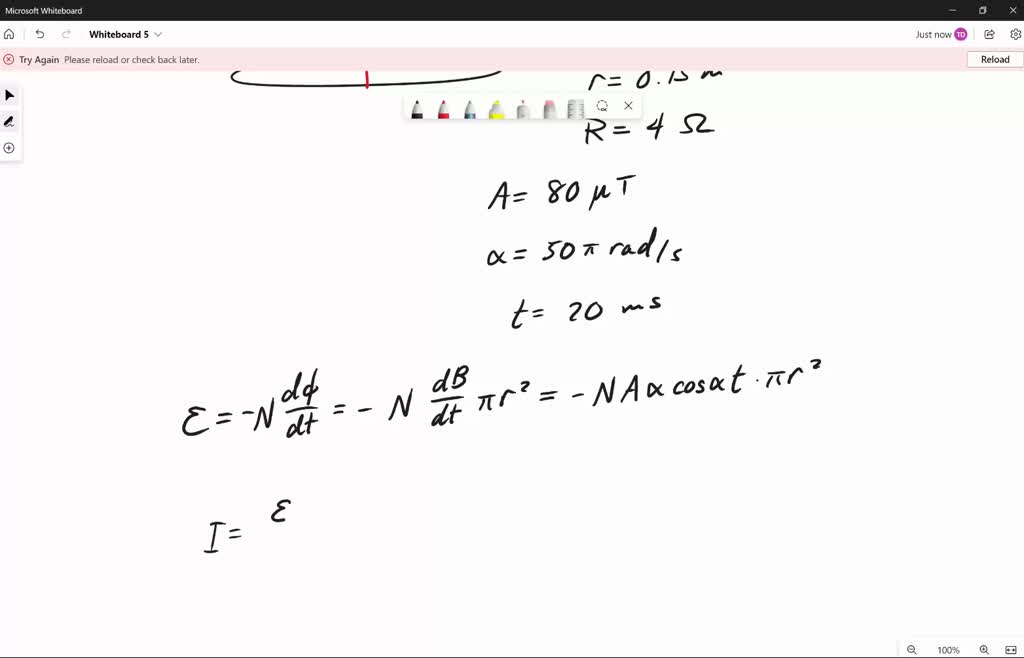 Microsoft Whiteboard
Whiteboard 5
Just now TD
Try Again Please reload or check back later.
Reload
r = 0.15 m
R = 4 Ω
A = 80 μT
α = 50π rad/s
t = 20 ms
ε = -N dϕ/dt = - N dB/dt πr² = - NAα cosαt · πr²
I = ε
100%